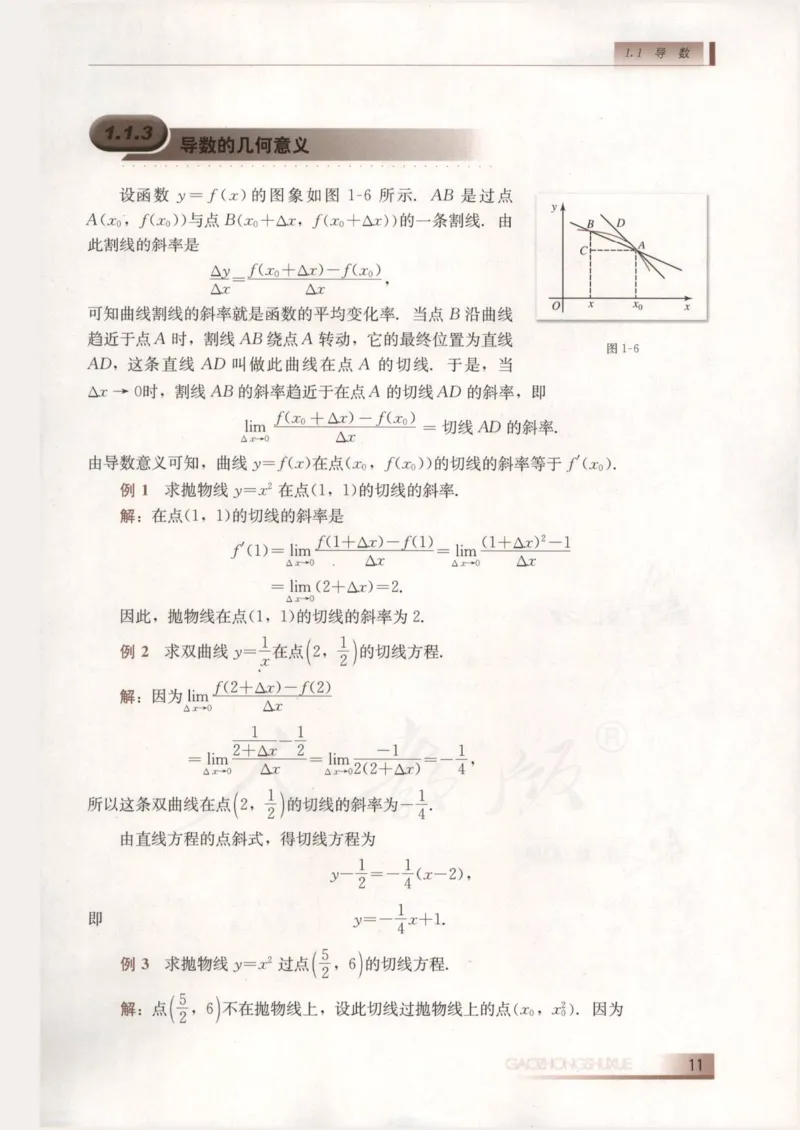 1.1 导 数
1.1.3
导数的几何意义
设函数 y=f(x)的图象如图 1-6 所示. AB 是过点
A(x₀, f(x₀))与点 B(x₀+Δx, f(x₀+Δx))的一条割线. 由
此割线的斜率是
Δy/Δx=(f(x₀+Δx)-f(x₀))/Δx,
可知曲线割线的斜率就是函数的平均变化率. 当点 B 沿曲线
趋近于点 A 时, 割线 AB 绕点 A 转动, 它的最终位置为直线
AD, 这条直线 AD 叫做此曲线在点 A 的切线. 于是, 当
Δx→0时, 割线 AB 的斜率趋近于在点 A 的切线 AD 的斜率, 即
y
B
D
C
A
O
x
x₀
x
图 1-6
lim Δx→0 (f(x₀+Δx)-f(x₀))/Δx=切线 AD 的斜率.
由导数意义可知, 曲线 y=f(x)在点(x₀, f(x₀))的切线的斜率等于 f′(x₀).
例 1 求抛物线 y=x² 在点(1, 1)的切线的斜率.
解: 在点(1, 1)的切线的斜率是
f′(1)=lim Δx→0 (f(1+Δx)-f(1))/Δx=lim Δx→0 ((1+Δx)²-1)/Δx
=lim Δx→0 (2+Δx)=2.
因此, 抛物线在点(1, 1)的切线的斜率为 2.
例 2 求双曲线 y=1/x 在点(2, 1/2)的切线方程.
解: 因为 lim Δx→0 (f(2+Δx)-f(2))/Δx
=lim Δx→0 (1/(2+Δx)-1/2)/Δx=lim Δx→0 -1/(2(2+Δx))=-1/4,
所以这条双曲线在点(2, 1/2)的切线的斜率为-1/4.
由直线方程的点斜式, 得切线方程为
y-1/2=-1/4(x-2),
即 y=-1/4x+1.
例 3 求抛物线 y=x² 过点(5/2, 6)的切线方程.
解: 点(5/2, 6)不在抛物线上, 设此切线过抛物线上的点(x₀, x₀²). 因为
GAOZHONGSHUXUE
11